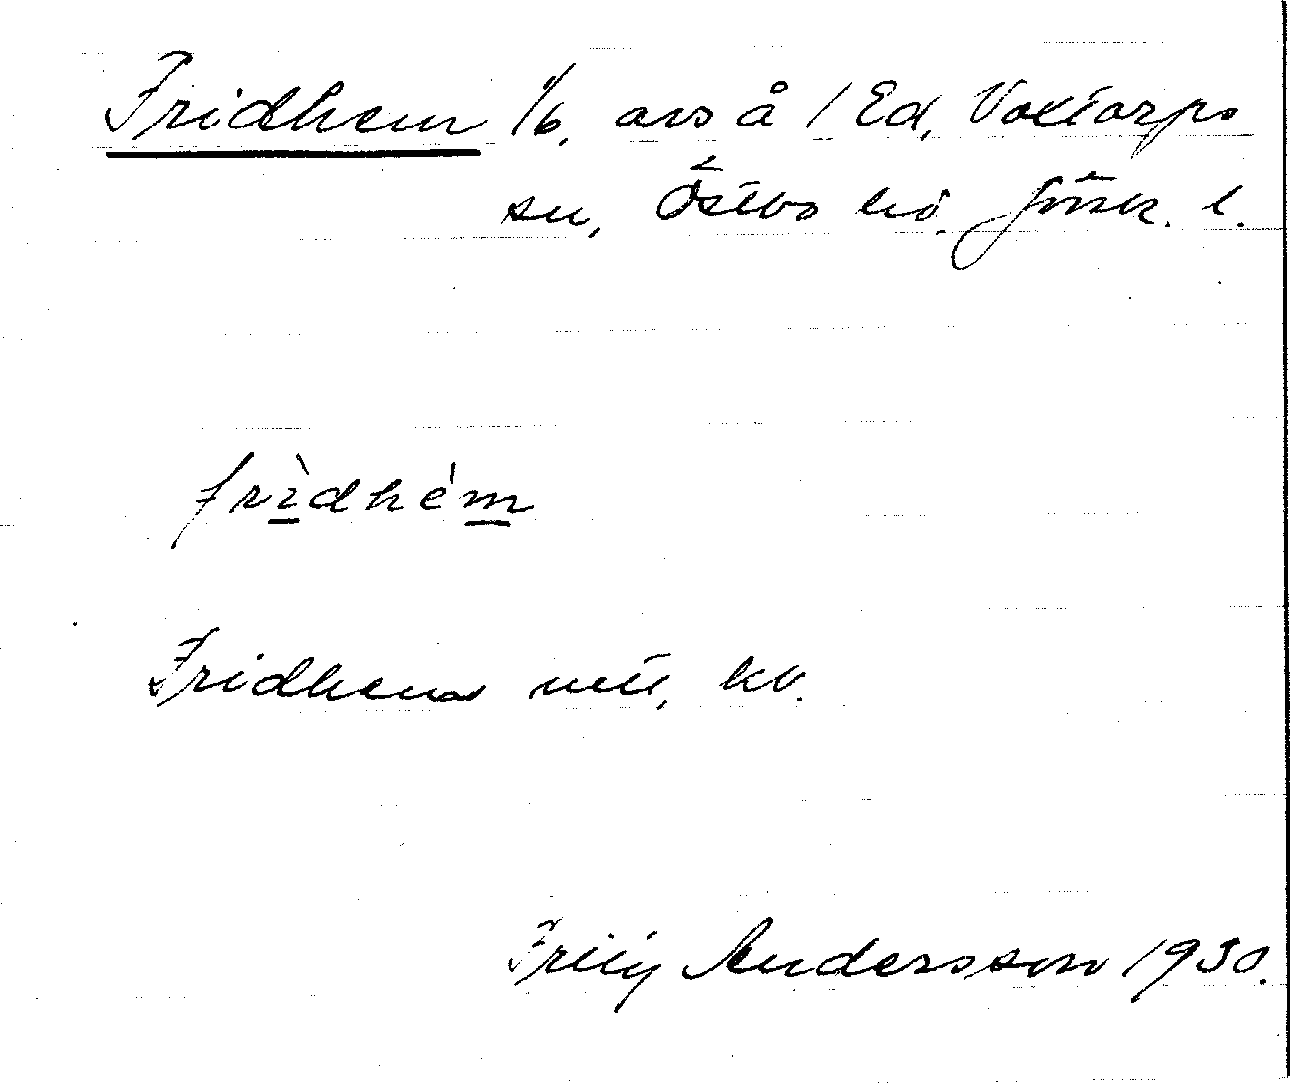 Fridhem 1/6, avs å 1 Ed, Voxtorps
sn, Östbo hd. Jönk. l.
frìdhém
Fridhem mtl, kv.
Andersson 1930.